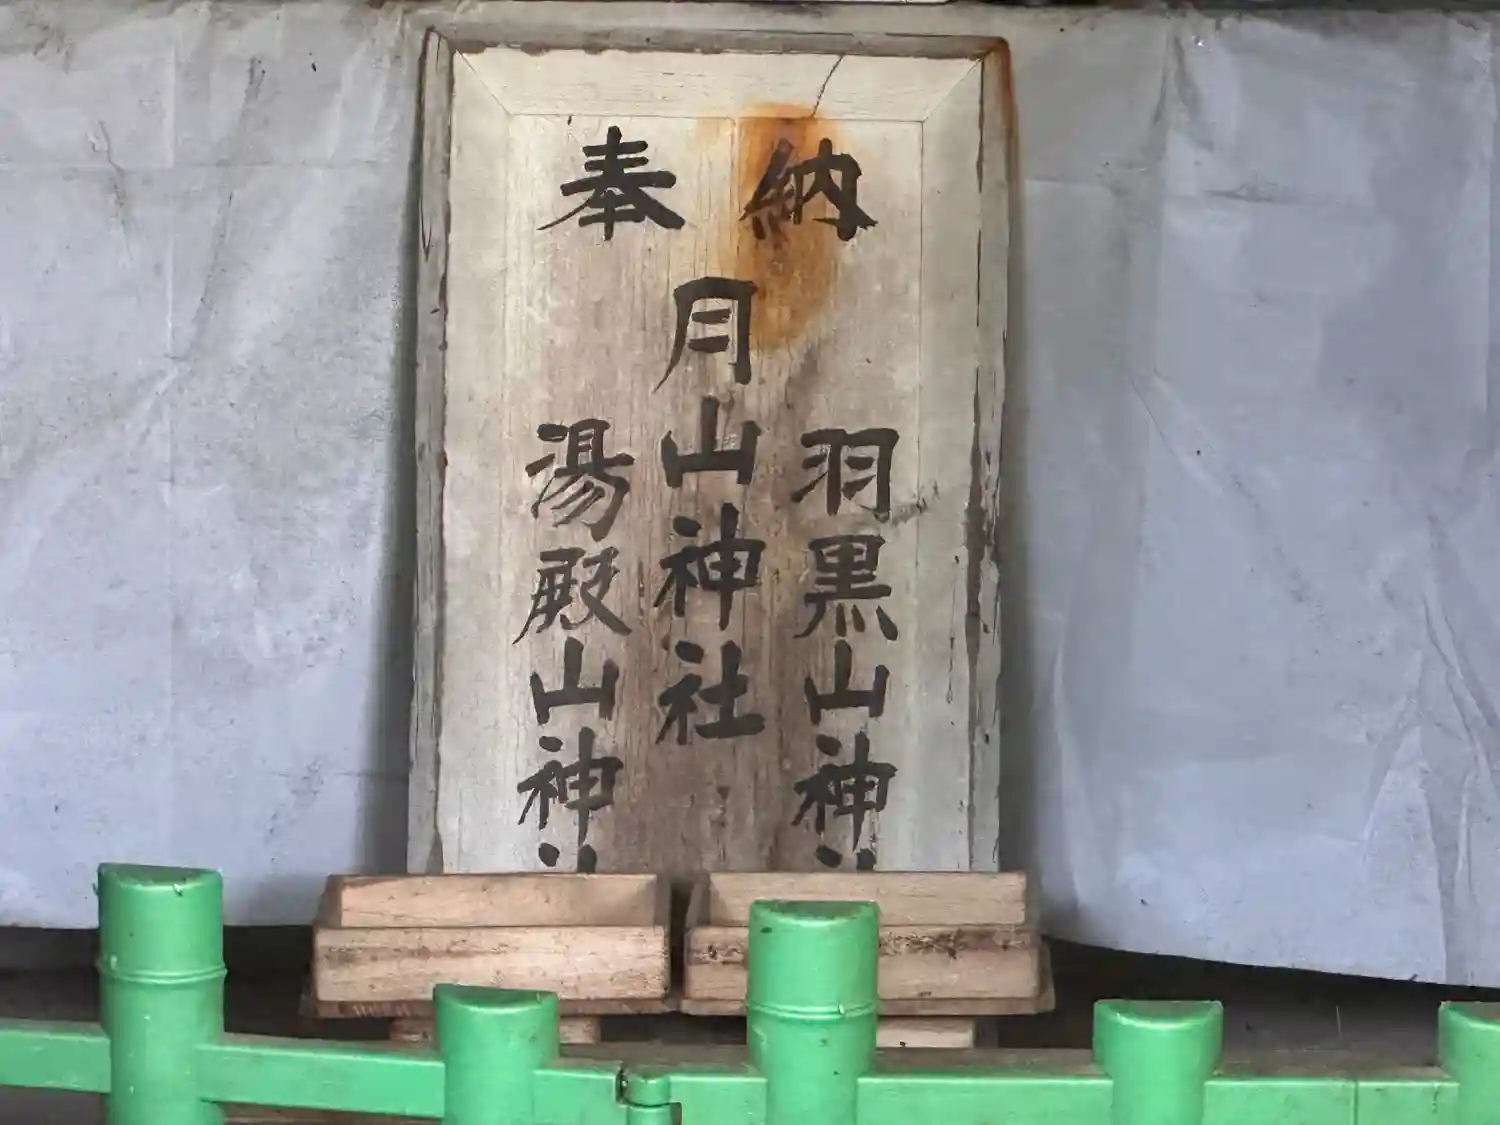 奉納
羽黒山神
月山神社
湯殿山神